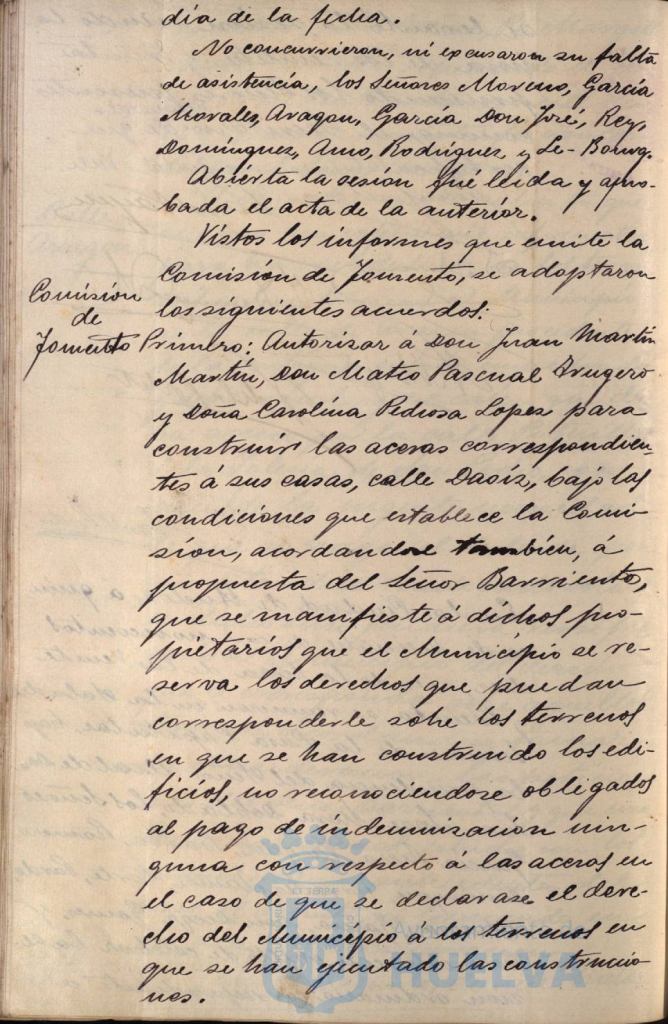 día de la fecha.
No concurrieron, ni excusaron su falta
de asistencia, los Señores Moreno, García
Morales, Aragon, García Don José, Rey,
Domínguez, Amo, Rodríguez y Le-Bourg.
Abierta la sesión fué leida y apro-
bada el acta de la anterior.
Vistos los informes que emite la
Comisión de Fomento, se adoptaron
los siguientes acuerdos:
Comisión
de
Fomento
Primero: Autorizar á Don Juan Martín
Martín, Don Mateo Pascual Trugero
y Doña Carolina Pedrosa Lopez para
construir las aceras correspondien-
tes á sus casas, calle Daoíz, bajo las
condiciones que establece la Comi-
sion, acordandose tambien, á
propuesta del Señor Barriento,
que se manifieste á dichos pro-
pietarios que el Município se re-
serva los derechos que puedan
corresponderle sobre los terrenos
en que se han construido los edi-
ficios, no reconociendose obligados
al pago de indemnización nin-
guna con respecto á las aceras en
el caso de que se declarase el dere-
cho del Município á los terrenos en
que se han ejecutado las construccio
nes.
HUELVA